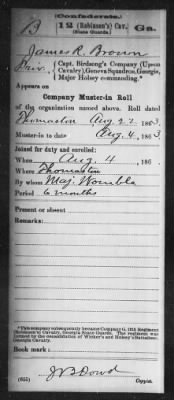 (Confederate.)
B 12 (Robinson's) Cav. Ga.
(State Guards.)
James R. Brown
Priv., Capt. Birdsong's Company (Upson
Cavalry), Geneva Squadron, Georgia,
Major Holsey commanding.*
Appears on
Company Muster-in Roll
of the organization named above. Roll dated
Thomaston Aug 22 1863
Muster-in to date Aug 4, 1863
Joined for duty and enrolled:
When Aug. 4, 186
Where Thomaston
By whom Maj. Wombla
Period 6 months
Present or absent
Remarks:
*This company subsequently became Company G, 12th Regiment
(Robinson's) Cavalry, Georgia State Guards. The regiment was
formed by the consolidation of Winker's and Holsey's Battalions,
Georgia Cavalry.
Book mark:
J B Dowd
(655) Copyist.